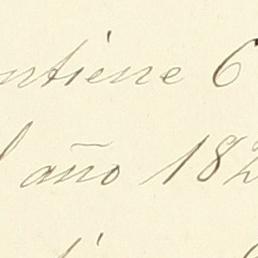 ntiene 6
l año 182